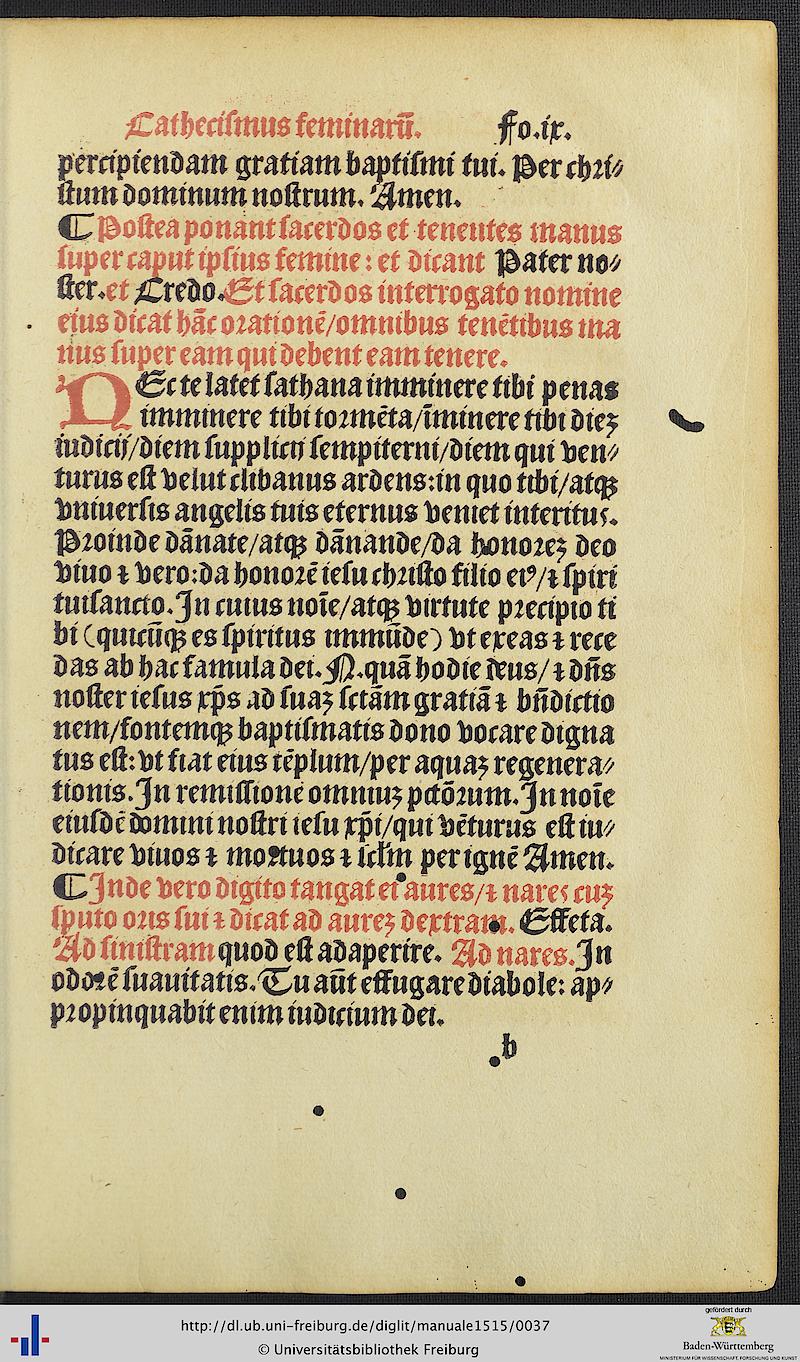 Cathecismus feminarū. Fo.ix.
percipiendam gratiam baptismi tui. Per chri⸗
stum dominum nostrum. Amen.
¶ Postea ponant sacerdos et tenentes manus
super caput ipsius femine: et dicant Pater no⸗
ster. et Credo. Et sacerdos interrogato nomine
eius dicat hāc orationē/omnibus tenētibus ma
nus super eam qui debent eam tenere.
NEc te latet sathana imminere tibi penas
imminere tibi tormēta/īminere tibi dieꝫ
iudicij/diem supplicij sempiterni/diem qui ven⸗
turus est velut clibanus ardens: in quo tibi/atqꝫ
vniuersis angelis tuis eternus veniet interitus.
Proinde dānate/atqꝫ dānande/da honoreꝫ deo
viuo ⁊ vero: da honorē iesu christo filio eiꝰ/⁊ spiri
tuisancto. In cuius noīe/atqꝫ virtute precipio ti
bi (quicūqꝫ es spiritus immūde) vt exeas ⁊ rece
das ab hac famula dei. N. quā hodie deus/⁊ dn̄s
noster iesus xp̄s ad suaꝫ sctām gratiā ⁊ bn̄dictio
nem/fontemqꝫ baptismatis dono vocare digna
tus est: vt fiat eius tēplum/per aquaꝫ regenera⸗
tionis. In remissione omniuꝫ pctōrum. In noīe
eiusdē domini nostri iesu xp̄i/qui vēturus est iu⸗
dicare viuos ⁊ mortuos ⁊ sclm̄ per ignē Amen.
¶ Inde vero digito tangat ei aures/⁊ nares cuꝫ
sputo oris sui ⁊ dicat ad aureꝫ dextram. Effeta.
Ad sinistram quod est adaperire. Ad nares. In
odorē suauitatis. Tu aūt effugare diabole: ap⸗
propinquabit enim iudicium dei.
b
http://dl.ub.uni-freiburg.de/diglit/manuale1515/0037
© Universitätsbibliothek Freiburg
gefördert durch
Baden-Württemberg
MINISTERIUM FÜR WISSENSCHAFT, FORSCHUNG UND KUNST